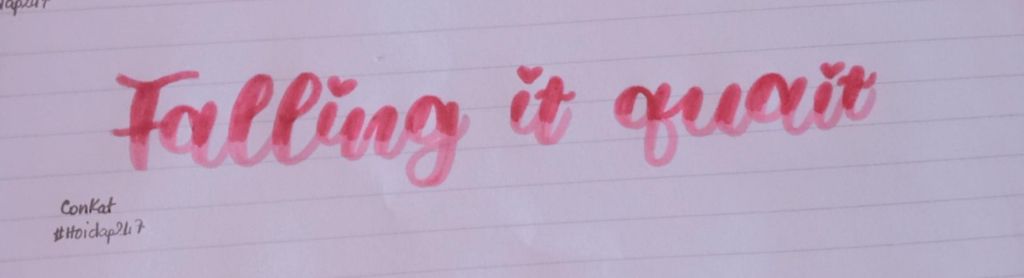 Falling it quait
ConKat
#Hoidap247